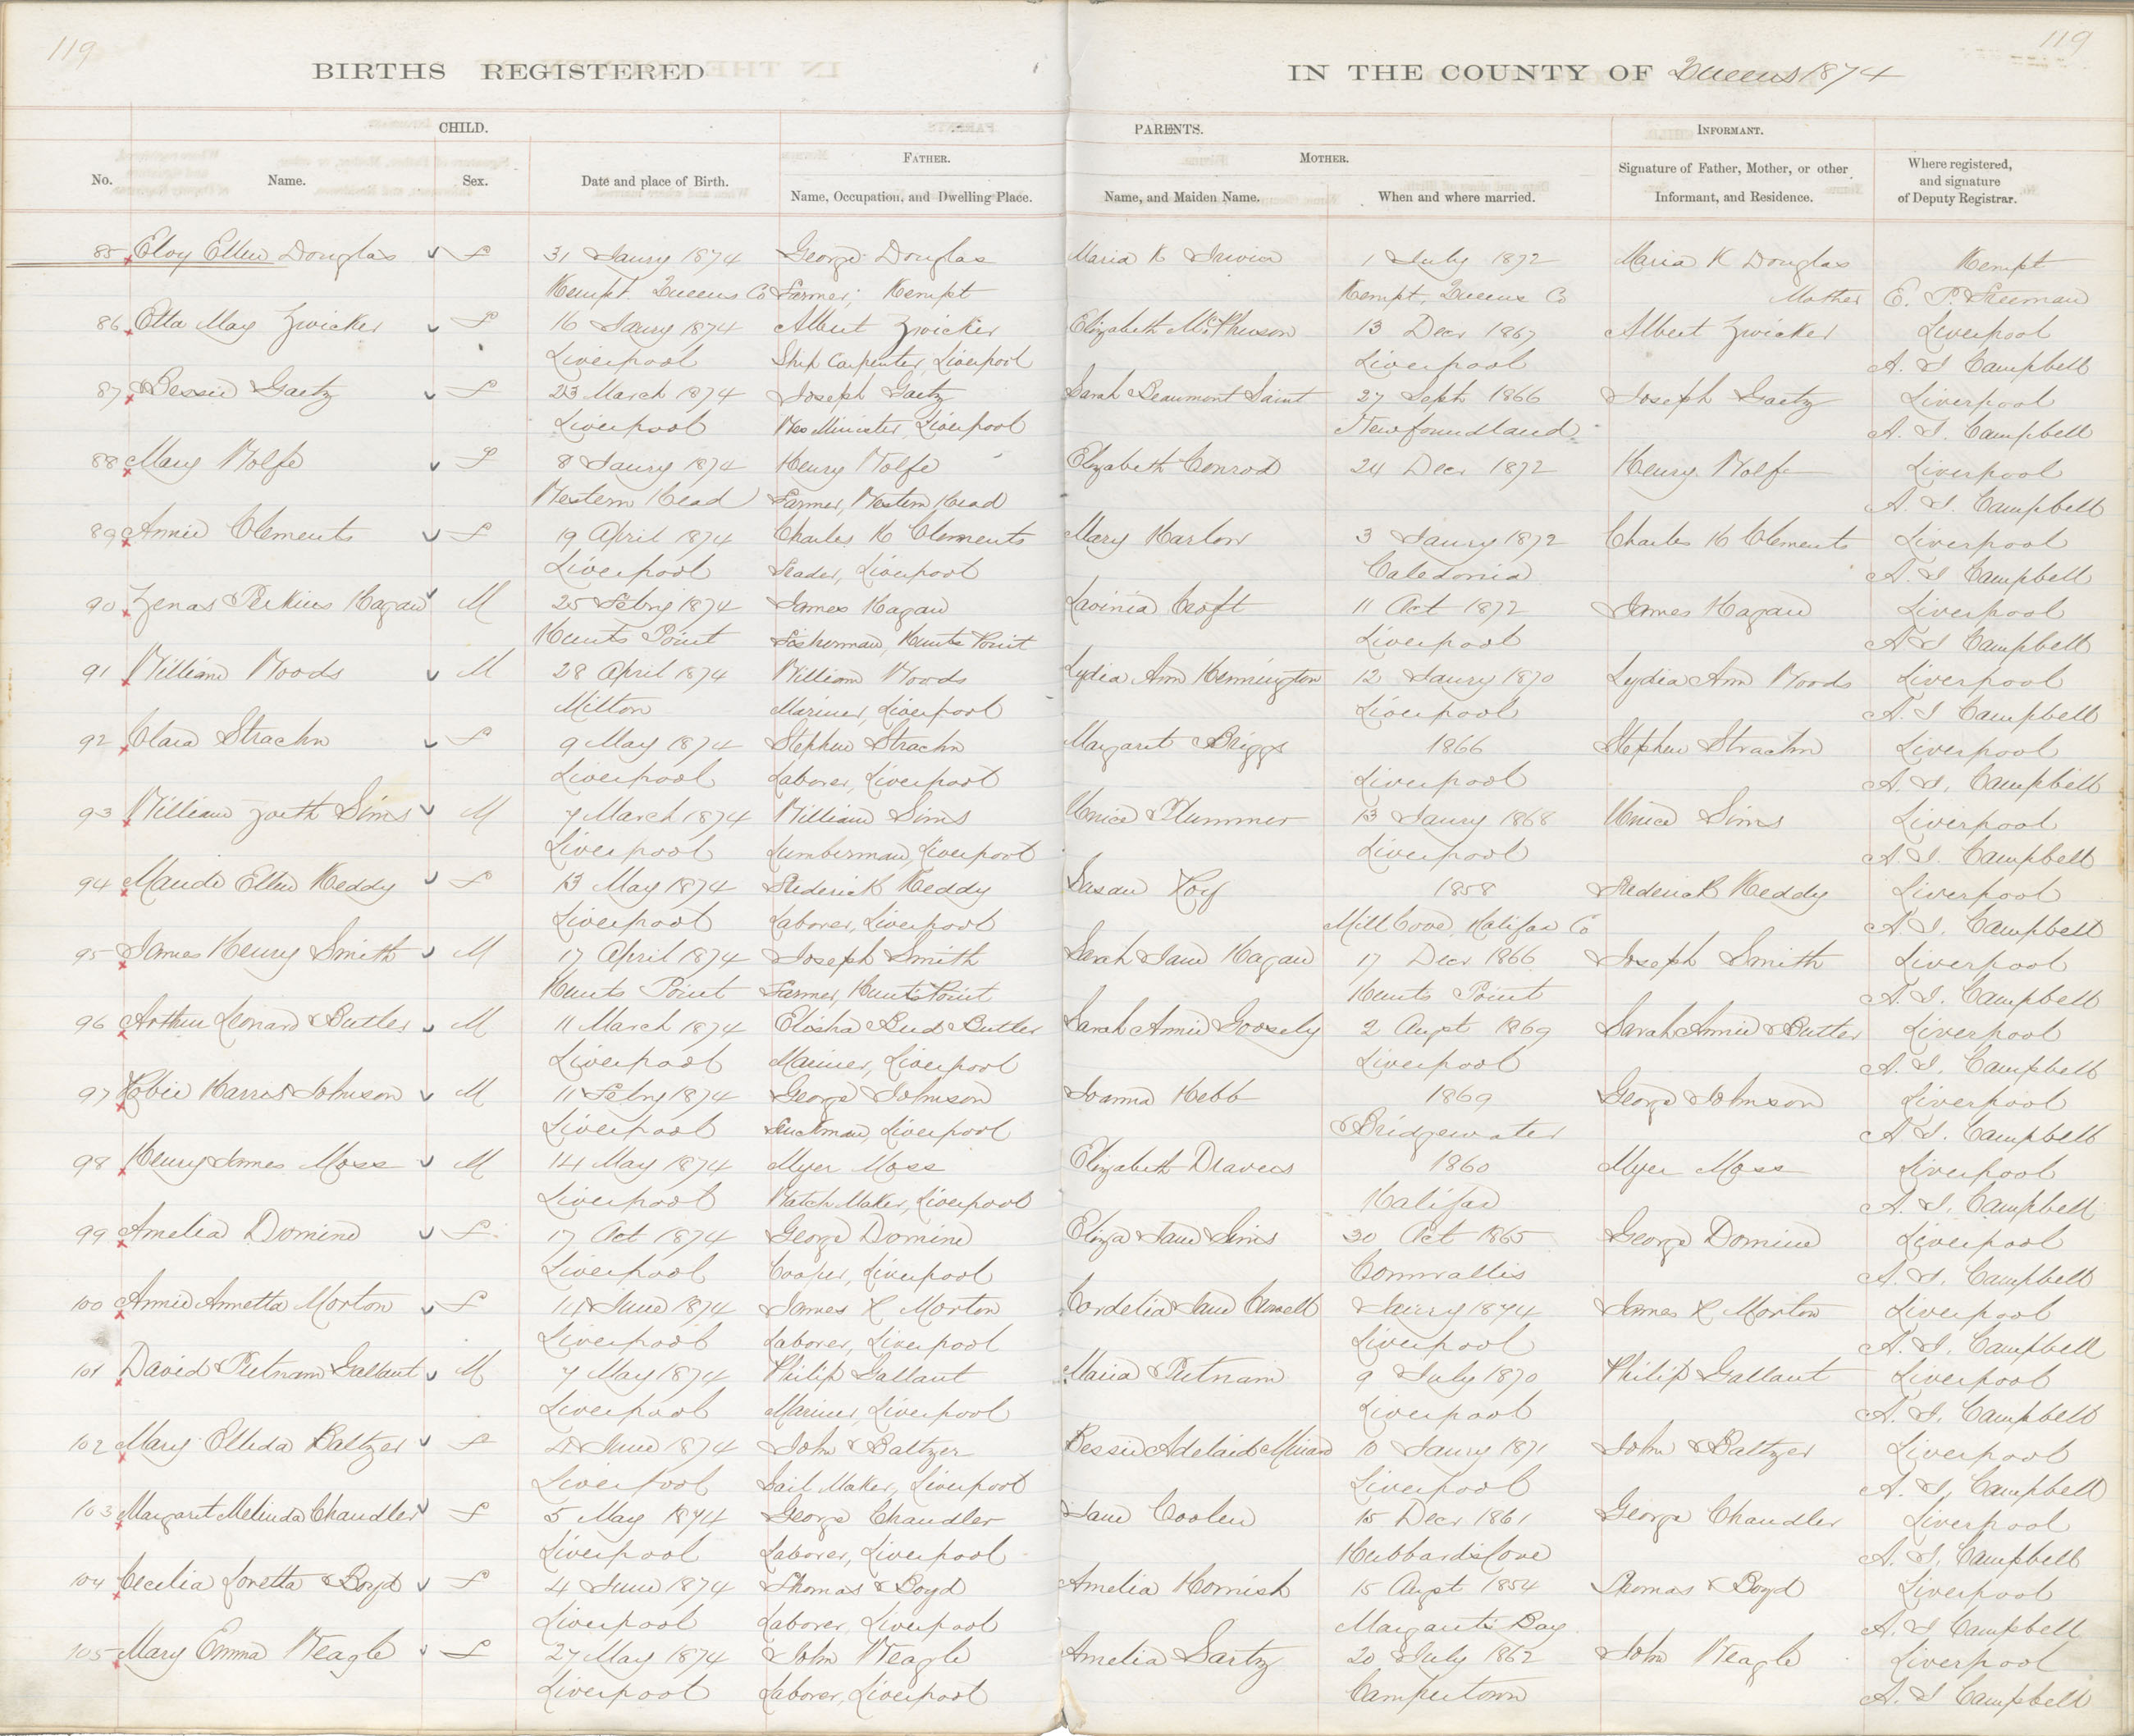 119
119
BIRTHS REGISTERED
IN THE COUNTY OF Queens 1874
CHILD.
PARENTS.
INFORMANT.
FATHER.
MOTHER.
No.
Name.
Sex.
Date and place of Birth.
Name, Occupation, and Dwelling Place.
Name, and Maiden Name.
When and where married.
Signature of Father, Mother, or other Informant, and Residence.
Where registered, and signature of Deputy Registrar.
85 Eloy Ellen Douglas f 31 Janry 1874 George Douglas Maria K 1 July 1872 Maria K Douglas Kempt
Kempt. Queens Co Farmer, Kempt Kempt, Queens Co Mother E. P. Freeman
86 Etta May Zwicker f 16 Janry 1874 Albert Zwicker Elizabeth McPherson 13 Decr 1867 Albert Zwicker Liverpool
Liverpool Ship Carpenter, Liverpool Liverpool A. J. Campbell
87 Bessie Gaetz f 23 March 1874 Joseph Gaetz Sarah Beaumont Saint 27 Sept 1866 Joseph Gaetz Liverpool
Liverpool Wes Minister, Liverpool Newfoundland A. J. Campbell
88 Mary Wolfe f 8 Janry 1874 Henry Wolfe Elizabeth Conrod 24 Decr 1872 Henry Wolfe Liverpool
Western Head Farmer, Western Head A. J. Campbell
89 Annie Clements f 19 April 1874 Charles H Clements Mary Harlow 3 Janry 1872 Charles H Clements Liverpool
Liverpool Liverpool Caledonia A. J. Campbell
90 Zenas Perkins Hagan M 25 Febry 1874 James Hagan Lavinia Croft 11 Oct 1872 James Hagan Liverpool
Hunts Point Fisherman, Hunts Point Liverpool A J Campbell
91 William Woods M 28 April 1874 William Woods Lydia Ann Hennington 12 Janry 1870 Lydia Ann Woods Liverpool
Milton Mariner, Liverpool Liverpool A. J. Campbell
92 Clara Strachn f 9 May 1874 Stephen Strachn Margaret Briggs 1866 Stephen Strachn Liverpool
Liverpool Laborer, Liverpool Liverpool A. J. Campbell
93 William Sims M 7 March 1874 William Sims Unice Plummer 13 Janry 1868 Unice Sims Liverpool
Liverpool Lumberman, Liverpool Liverpool A. J. Campbell
94 Maude Ellen Keddy f 13 May 1874 Frederick Keddy Susan 1858 Frederick Keddy Liverpool
Liverpool Laborer, Liverpool Mill Cove, Halifax Co A. J. Campbell
95 James Henry Smith M 17 April 1874 Joseph Smith Sarah Jane Hagan 17 Decr 1866 Joseph Smith Liverpool
Hunts Point Farmer, Hunts Point Hunts Point A. J. Campbell
96 Arthur Leonard Butler M 11 March 1874 Elisha Butler Sarah Annie Goosely 2 Augst 1869 Sarah Annie Butler Liverpool
Liverpool Mariner, Liverpool Liverpool A. J. Campbell
97 Robie Harris Johnson M 11 Febry 1874 George Johnson Joanna Hebb 1869 George Johnson Liverpool
Liverpool Truckman, Liverpool Bridgewater A. J. Campbell
98 Henry James Moss M 14 May 1874 Myer Moss Elizabeth 1860 Myer Moss Liverpool
Liverpool Watch Maker, Liverpool Halifax A. J. Campbell
99 Amelia Domine f 17 Oct 1874 George Domine Eliza Jane Sims 30 Oct 1865 George Domine Liverpool
Liverpool Cooper, Liverpool Cornwallis A. J. Campbell
100 Annie Annetta Morton f 14 June 1874 James R Morton Cordelia Jane Janry 1874 James R Morton Liverpool
Liverpool Laborer, Liverpool Liverpool A. J. Campbell
101 David Putnam Gallant M 7 May 1874 Philip Gallant Maria Putnam 9 July 1870 Philip Gallant Liverpool
Liverpool Mariner, Liverpool Liverpool A. J. Campbell
102 Mary Baltzer f 4 June 1874 John Baltzer Bessie Adelaid Minard 10 Janry 1871 John Baltzer Liverpool
Liverpool Sail Maker, Liverpool Liverpool A. J. Campbell
103 Margaret Melinda Chandler f 5 May 1874 George Chandler Jane Coolen 15 Decr 1861 George Chandler Liverpool
Liverpool Laborer, Liverpool Hubbards Cove A. J. Campbell
104 Cecelia Loretta Boyd f 4 June 1874 Thomas Boyd Amelia Hornish 15 Augst 1854 Thomas Boyd Liverpool
Liverpool Laborer, Liverpool Margarets Bay A. J. Campbell
105 Mary Emma Weagle f 27 May 1874 John Weagle Amelia 20 July 1862 John Weagle Liverpool
Liverpool Laborer, Liverpool Campertown A. J Campbell